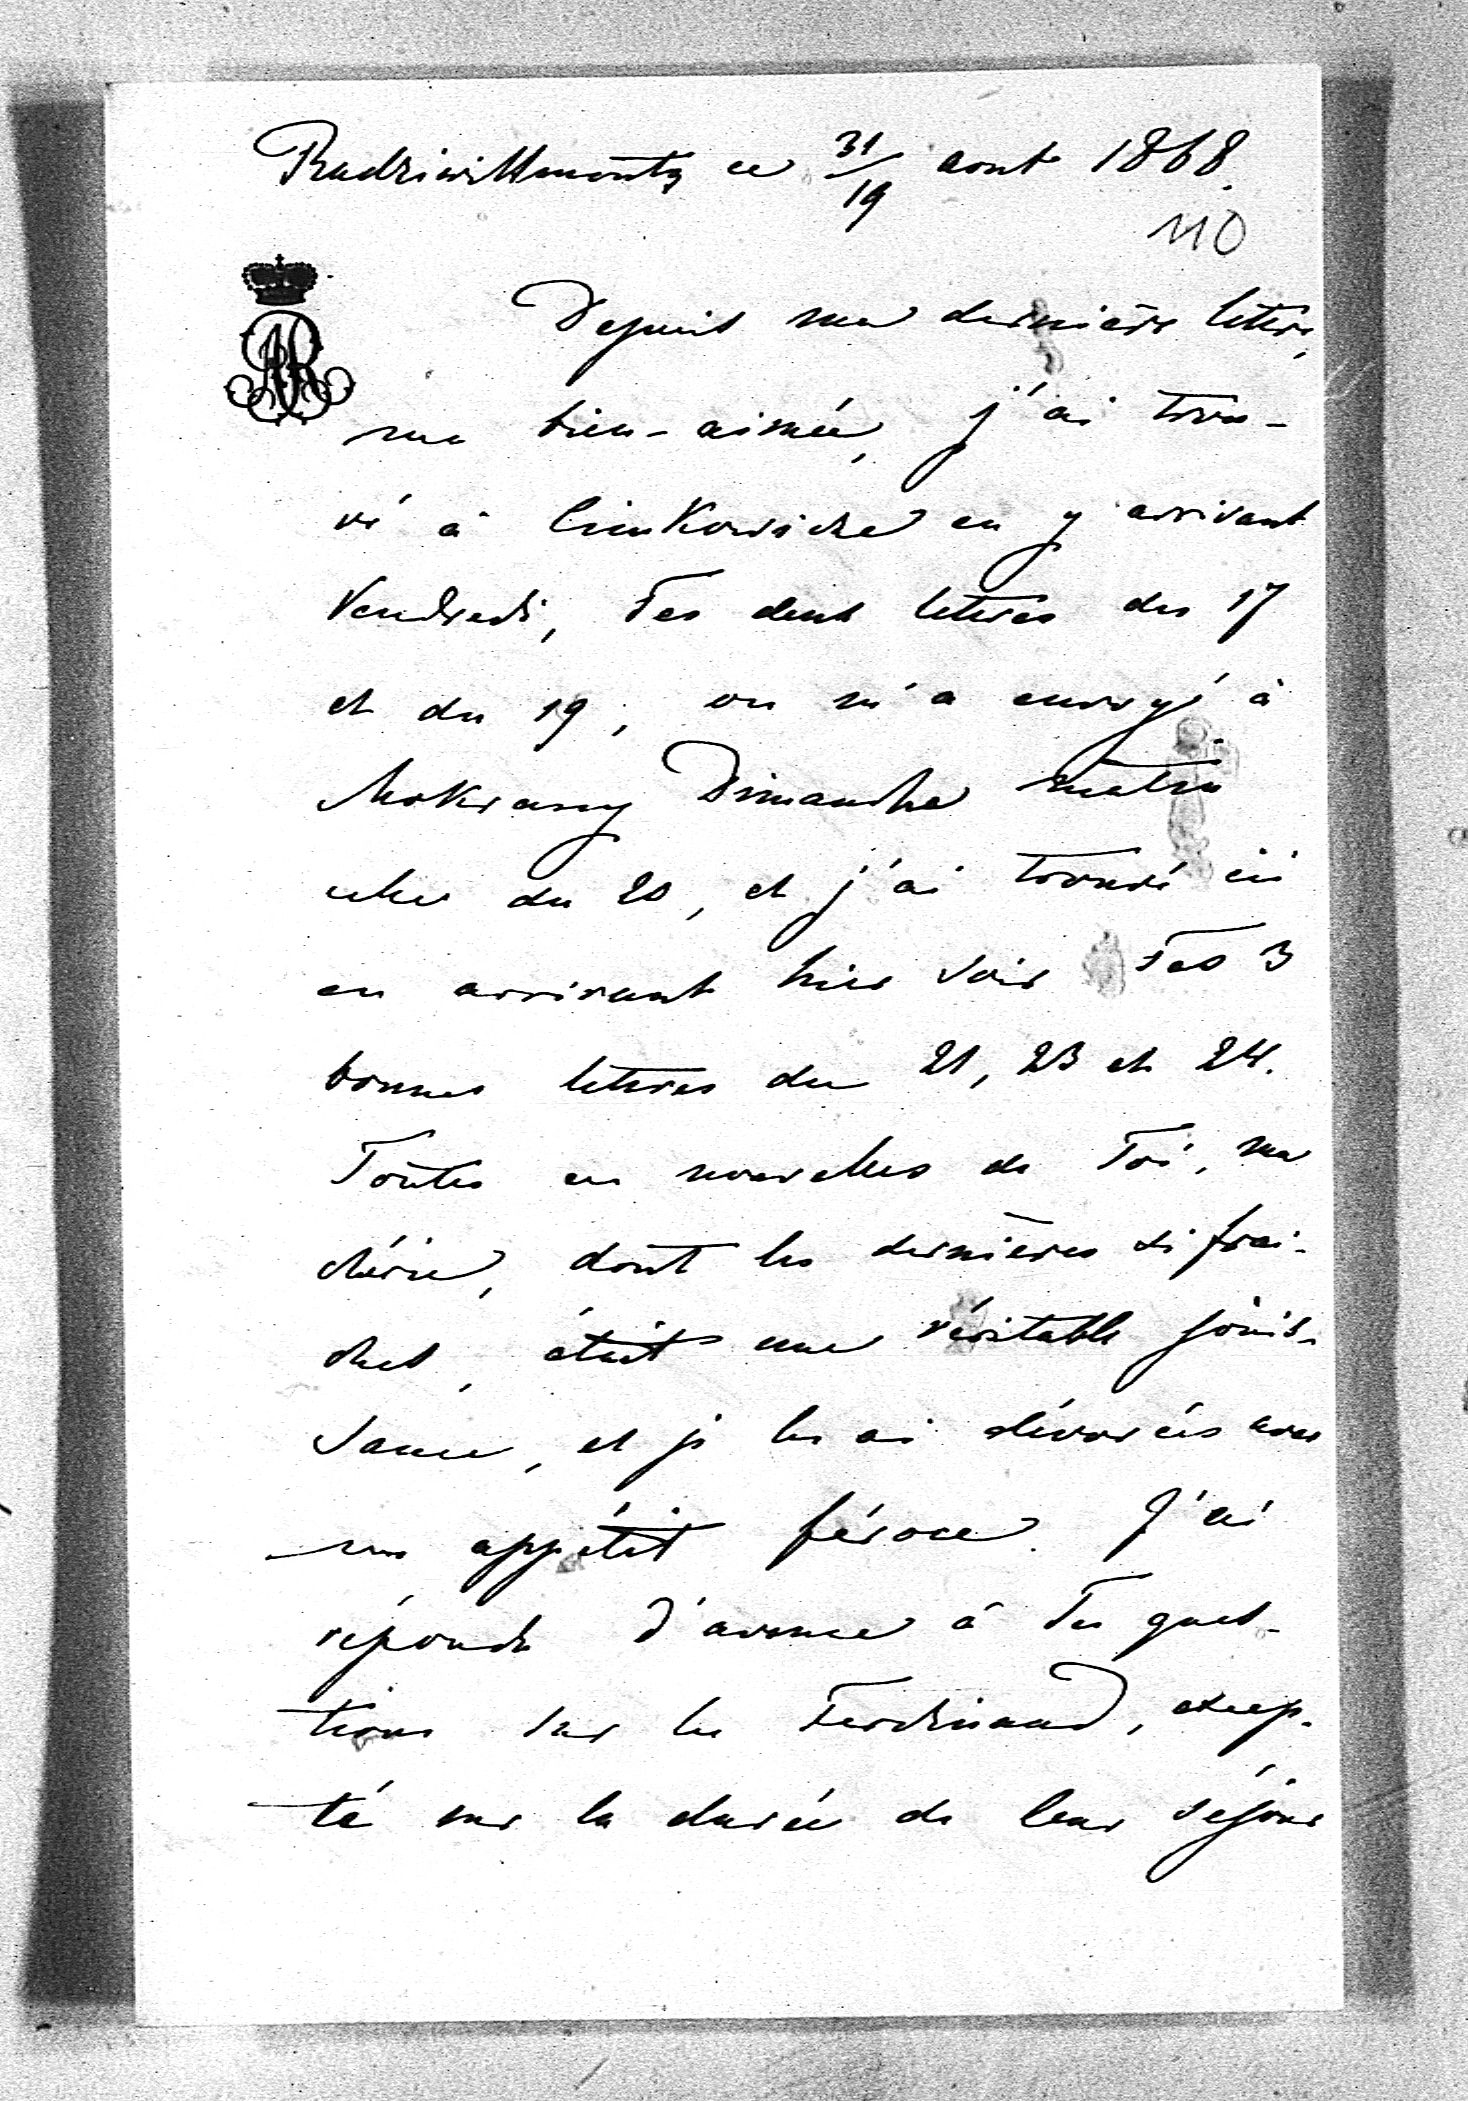 Radziwillmonty ce 31/19 aout 1868.
110
AR
Depuis ma dernière lettre,
ma bien-aimée, j'ai trou-
vé à Cimkowicze en y arrivant
Vendredi, Tes deux lettres du 17
et du 19, on m'a envoyé à
Mokrany Dimanche matin
celle du 20, et j'ai trouvé ici
en arrivant hier soir Tes 3
bonnes lettres du 21, 23 et 24.
Toutes ces nouvelles de Toi, ma
chérie, dont les dernières si frai-
ches, était une véritable jouis-
sance, et je les ai dévorées avec
un appétit féroce. J'ai
répondu d'avance à Tes ques-
tions sur les Ferdinand, excep-
té sur la durée de leur séjour